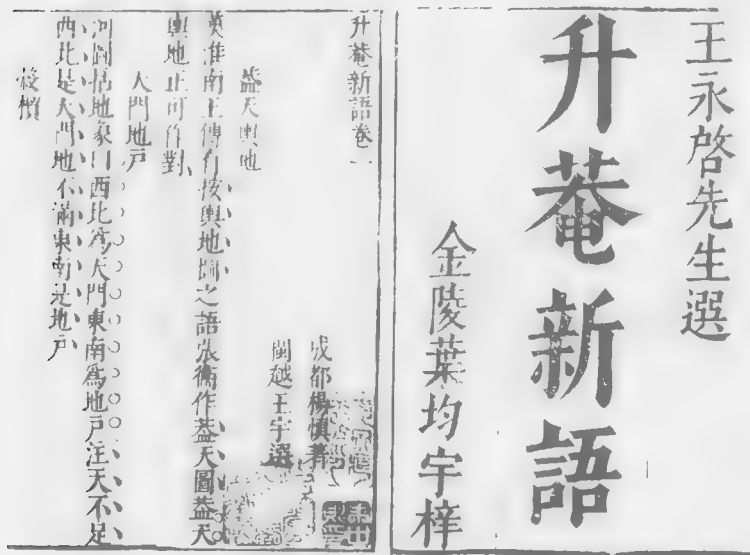 王永啓先生選
升菴新語
金陵葉均宇梓
升菴新語卷一
成都楊慎著
閩越王宇選
葢天輿地
漢淮南王傳有按輿地圖之語張衡作葢天圖葢天
輿地正可作對
天門地戶
河圖括地象曰西北爲天門東南爲地戶注天不足
西北是天門地不滿東南是地戶